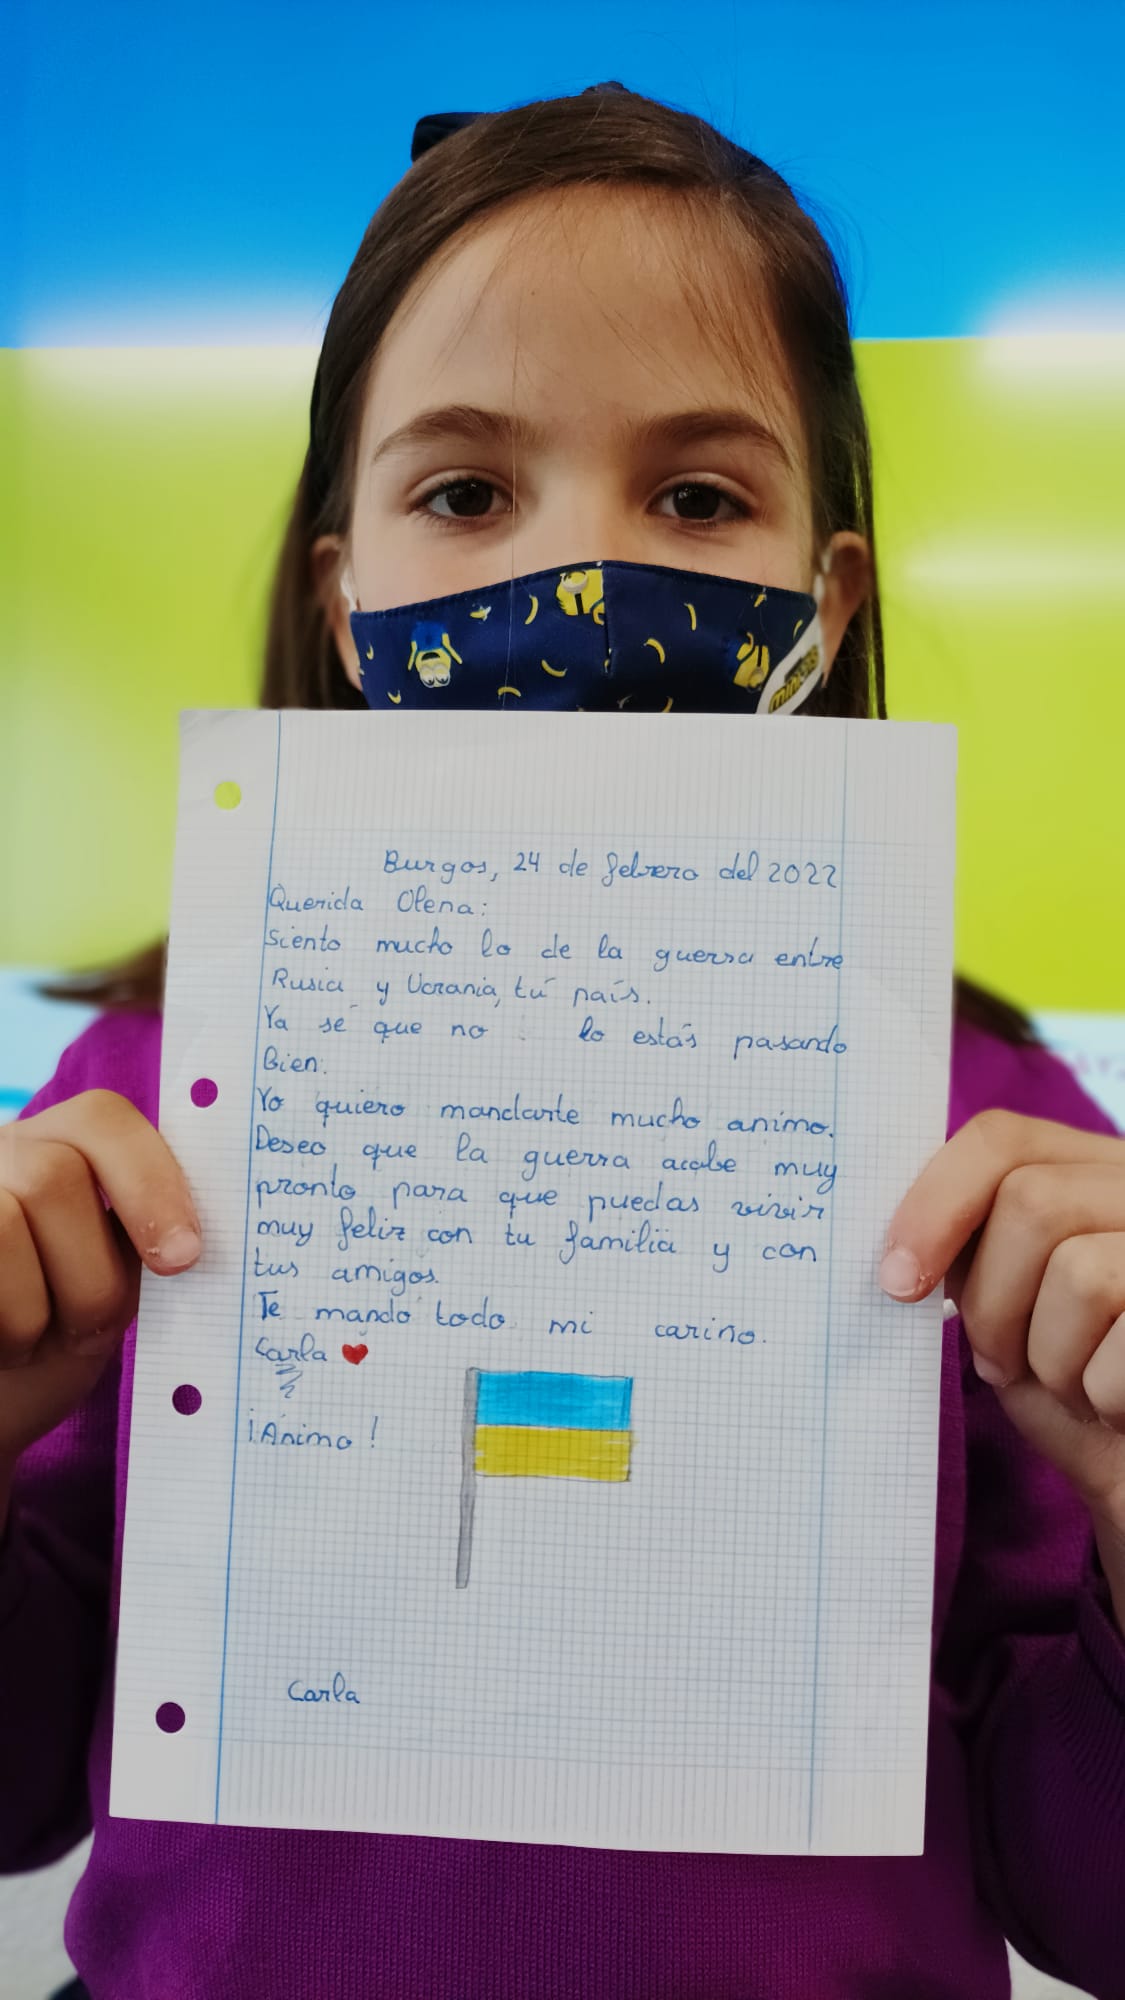 minions
Burgos, 24 de febrero del 2022
Querida Olena:
Siento mucho lo de la guerra entre
Rusia y Ucrania, tú país.
Ya sé que no lo estás pasando
Bien.
Yo quiero mandarte mucho animo.
Deseo que la guerra acabe muy
pronto para que puedas vivir
muy feliz con tu familia y con
tus amigos.
Te mando todo mi cariño.
Carla
¡Ánimo!
Carla